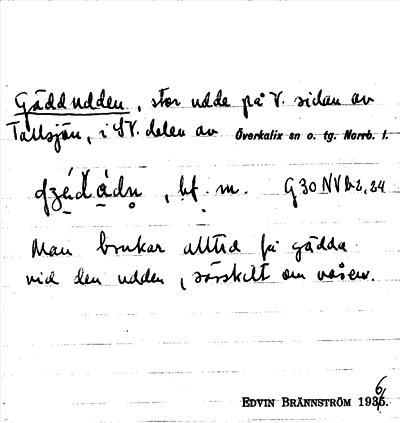 Gäddudden, stor udde på V. sidan av
Tallsjön, i SV. delen av Överkalix sn o. tg. Norrb. l.
bf. m. G 30 NV b 2, 24
Man brukar alltid få gädda
vid den udden, särskilt om våren.
EDVIN BRÄNNSTRÖM 1936.